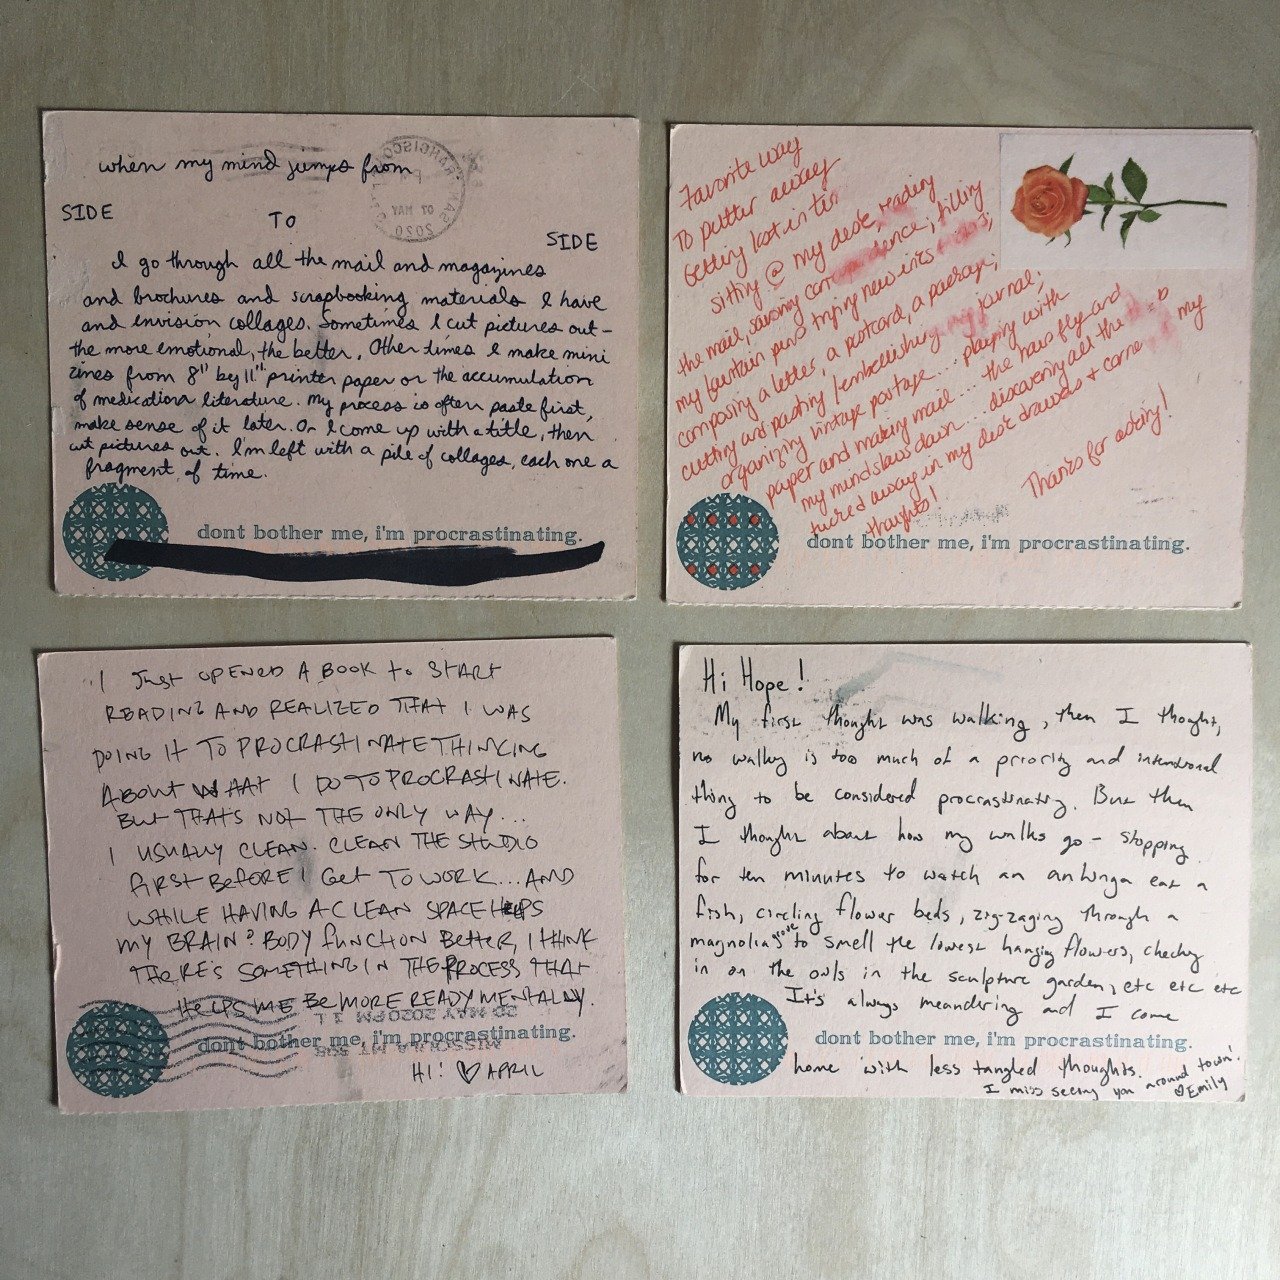 when my mind jumps from
SIDE
TO
SIDE
I go through all the mail and magazines
and brochures and scrapbooking materials I have
and envision collages. Sometimes I cut pictures out -
the more emotional, the better. Other times I make mini
zines from 8" by 11" printer paper or the accumulation
of medication literature. My process is often paste first,
make sense of it later. Or I come up with a title, then
cut pictures out. I'm left with a pile of collages, each one a
fragment of time.
dont bother me, i'm procrastinating.
Favorite way
To putter away
Getting lost in
sitting @ my desk, reading
the mail, savoring correspondence; filling
my fountain pens trying new inks
composing a letter, a postcard, a package;
cutting and pasting / embellishing my journal;
organizing vintage postage... playing with
paper and making mail... the hours fly and
my mind slows down... discovering all the
tucked away in my desk drawers + corners my
thoughts!
Thanks for asking!
dont bother me, i'm procrastinating.
I JUST OPENED A BOOK TO START
READING AND REALIZED THAT I WAS
DOING IT TO PROCRASTINATE THINKING
ABOUT WHAT I DO TO PROCRASTINATE.
BUT THAT'S NOT THE ONLY WAY...
I USUALLY CLEAN. CLEAN THE STUDIO
FIRST BEFORE I GET TO WORK... AND
WHILE HAVING A CLEAN SPACE HELPS
MY BRAIN & BODY FUNCTION BETTER, I THINK
THERE'S SOMETHING IN THE PROCESS THAT
HELPS ME BE MORE READY MENTALLY.
20 MAY 2020 PM 1 L
dont bother me, i'm procrastinating.
MISSOULA MT 598
HI! ♡ APRIL
Hi Hope!
My first thought was walking, then I thought,
no walking is too much of a priority and intentional
thing to be considered procrastinating. But then
I thought about how my walks go - stopping
for ten minutes to watch an anhinga eat a
fish, circling flower beds, zig-zaging through a
magnolia grove to smell the lowest hanging flowers, checking
in on the owls in the sculpture garden, etc etc etc
It's always meandering and I come
dont bother me, i'm procrastinating.
home with less tangled thoughts.
I miss seeing you around town!
♡ Emily